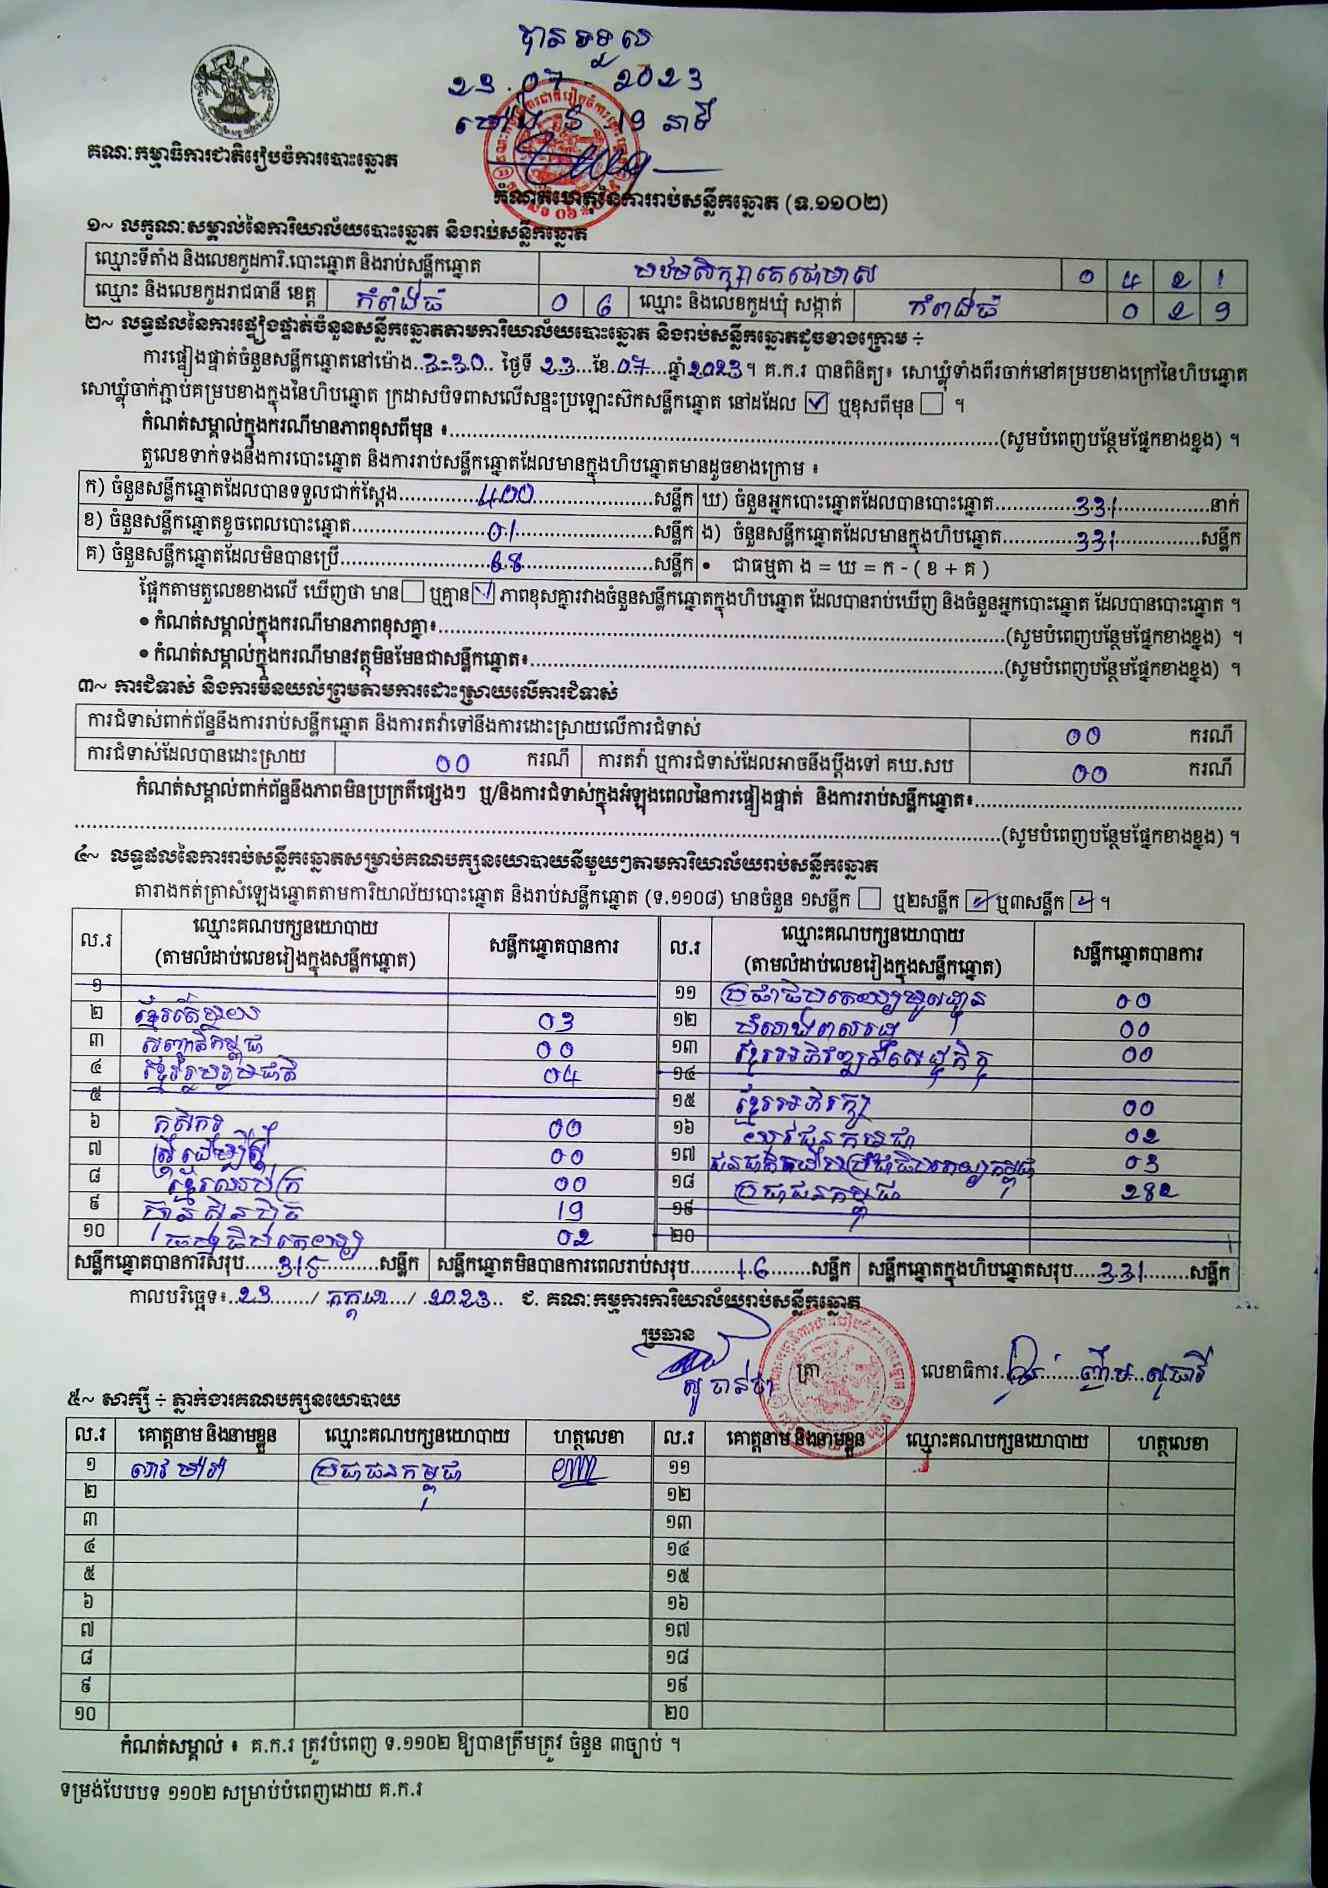 បានទទួល
23.07.2023
គណៈកម្មាធិការជាតិរៀបចំការបោះឆ្នោត
កំណត់ហេតុនៃការរាប់សន្លឹកឆ្នោត (ទ.១១០២)
១~ លក្ខណៈសម្គាល់នៃការិយាល័យបោះឆ្នោត និងរាប់សន្លឹកឆ្នោត
ឈ្មោះទីតាំង និងលេខកូដការិ.បោះឆ្នោត និងរាប់សន្លឹកឆ្នោត 0 4 2 1
ឈ្មោះ និងលេខកូដរាជធានី ខេត្ត កំពង់ធំ 0 6 ឈ្មោះ និងលេខកូដឃុំ សង្កាត់ កំពង់ធំ 0 2 9
២~ លទ្ធផលនៃការផ្ទៀងផ្ទាត់ចំនួនសន្លឹកឆ្នោតតាមការិយាល័យបោះឆ្នោត និងរាប់សន្លឹកឆ្នោតដូចខាងក្រោម ÷
ការផ្ទៀងផ្ទាត់ចំនួនសន្លឹកឆ្នោតនៅម៉ោង..3:30.. ថ្ងៃទី 23...ខែ.07....ឆ្នាំ 2023។ គ.ក.រ បានពិនិត្យ៖ សោឃ្លុំទាំងពីរចាក់នៅគម្របខាងក្រៅនៃហិបឆ្នោត
សោឃ្លុំចាក់ភ្ជាប់គម្របខាងក្នុងនៃហិបឆ្នោត ក្រដាសបិទពាសលើសន្ទះប្រឡោះស៊កសន្លឹកឆ្នោត នៅដដែល ☑ ឬខុសពីមុន ☐ ។
កំណត់សម្គាល់ក្នុងករណីមានភាពខុសពីមុន ៖....................(សូមបំពេញបន្ថែមផ្នែកខាងខ្នង) ។
តួលេខទាក់ទងនឹងការបោះឆ្នោត និងការរាប់សន្លឹកឆ្នោតដែលមានក្នុងហិបឆ្នោតមានដូចខាងក្រោម ៖
ក) ចំនួនសន្លឹកឆ្នោតដែលបានទទួលជាក់ស្ដែង..........400..........សន្លឹក ឃ) ចំនួនអ្នកបោះឆ្នោតដែលបានបោះឆ្នោត..........331..........នាក់
ខ) ចំនួនសន្លឹកឆ្នោតខូចពេលបោះឆ្នោត..........01..........សន្លឹក ង) ចំនួនសន្លឹកឆ្នោតដែលមានក្នុងហិបឆ្នោត..........331..........សន្លឹក
គ) ចំនួនសន្លឹកឆ្នោតដែលមិនបានប្រើ..........68..........សន្លឹក • ជាធម្មតា ង = ឃ = ក - ( ខ + គ )
ផ្អែកតាមតួលេខខាងលើ ឃើញថា មាន ☐ ឬគ្មាន ☑ ភាពខុសគ្នារវាងចំនួនសន្លឹកឆ្នោតក្នុងហិបឆ្នោត ដែលបានរាប់ឃើញ និងចំនួនអ្នកបោះឆ្នោត ដែលបានបោះឆ្នោត ។
• កំណត់សម្គាល់ក្នុងករណីមានភាពខុសគ្នា៖....................(សូមបំពេញបន្ថែមផ្នែកខាងខ្នង) ។
• កំណត់សម្គាល់ក្នុងករណីមានវត្ថុមិនមែនជាសន្លឹកឆ្នោត៖....................(សូមបំពេញបន្ថែមផ្នែកខាងខ្នង) ។
៣~ ការជំទាស់ និងការមិនយល់ព្រមតាមការដោះស្រាយលើការជំទាស់
ការជំទាស់ពាក់ព័ន្ធនឹងការរាប់សន្លឹកឆ្នោត និងការតវ៉ាទៅនឹងការដោះស្រាយលើការជំទាស់ 00 ករណី
ការជំទាស់ដែលបានដោះស្រាយ 00 ករណី ការតវ៉ា ឬការជំទាស់ដែលអាចនឹងប្ដឹងទៅ គឃ.សប 00 ករណី
កំណត់សម្គាល់ពាក់ព័ន្ធនឹងភាពមិនប្រក្រតីផ្សេងៗ ឬ/និងការជំទាស់ក្នុងអំឡុងពេលនៃការផ្ទៀងផ្ទាត់ និងការរាប់សន្លឹកឆ្នោត៖....................
....................(សូមបំពេញបន្ថែមផ្នែកខាងខ្នង) ។
៤~ លទ្ធផលនៃការរាប់សន្លឹកឆ្នោតសម្រាប់គណបក្សនយោបាយនីមួយៗតាមការិយាល័យរាប់សន្លឹកឆ្នោត
តារាងកត់ត្រាសំឡេងឆ្នោតតាមការិយាល័យបោះឆ្នោត និងរាប់សន្លឹកឆ្នោត (ទ.១១០៨) មានចំនួន ១សន្លឹក ☐ ឬ២សន្លឹក ☑ ឬ៣សន្លឹក ☑ ។
ល.រ ឈ្មោះគណបក្សនយោបាយ (តាមលំដាប់លេខរៀងក្នុងសន្លឹកឆ្នោត) សន្លឹកឆ្នោតបានការ ល.រ ឈ្មោះគណបក្សនយោបាយ (តាមលំដាប់លេខរៀងក្នុងសន្លឹកឆ្នោត) សន្លឹកឆ្នោតបានការ
១ ១១ 00
២ 03 ១២ 00
៣ 00 ១៣ 00
៤ ខ្មែររួបរួមជាតិ 04 ១៤
៥ ១៥ ខ្មែរអភិរក្ស 00
៦ កសិករ 00 ១៦ 02
៧ ស្ត្រីដើម្បីស្ត្រី 00 ១៧ 03
៨ 00 ១៨ ប្រជាជនកម្ពុជា 282
៩ 19 ១៩
១០ 02 ២០
សន្លឹកឆ្នោតបានការសរុប......315..........សន្លឹក សន្លឹកឆ្នោតមិនបានការពេលរាប់សរុប.......16.......សន្លឹក សន្លឹកឆ្នោតក្នុងហិបឆ្នោតសរុប....331........សន្លឹក
កាលបរិច្ឆេទ៖..23......./ កក្កដា.../ .2023.. ជ. គណៈកម្មការការិយាល័យរាប់សន្លឹកឆ្នោត
ប្រធាន
ត្រា លេខាធិការ
៥~ សាក្សី ÷ ភ្នាក់ងារគណបក្សនយោបាយ
ល.រ គោត្តនាម និងនាមខ្លួន ឈ្មោះគណបក្សនយោបាយ ហត្ថលេខា ល.រ គោត្តនាម និងនាមខ្លួន ឈ្មោះគណបក្សនយោបាយ ហត្ថលេខា
១ ប្រជាជនកម្ពុជា ១១
២ ១២
៣ ១៣
៤ ១៤
៥ ១៥
៦ ១៦
៧ ១៧
៨ ១៨
៩ ១៩
១០ ២០
កំណត់សម្គាល់ ៖ គ.ក.រ ត្រូវបំពេញ ទ.១១០២ ឱ្យបានត្រឹមត្រូវ ចំនួន ៣ច្បាប់ ។
ទម្រង់បែបបទ ១១០២ សម្រាប់បំពេញដោយ គ.ក.រ